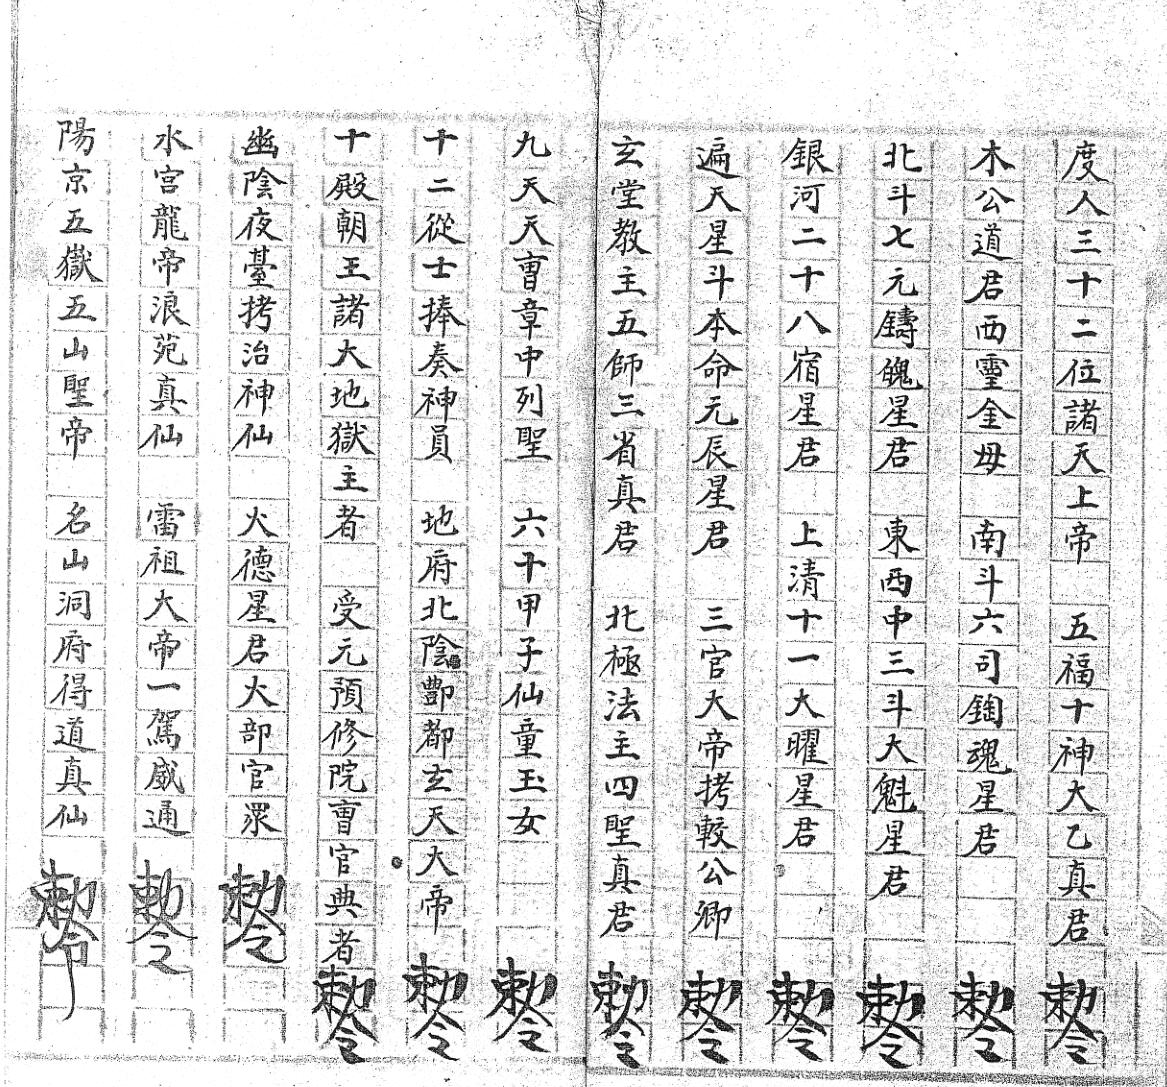 度人三十二位諸天上帝　五福十神大乙真君　勅令
木公道君西靈金母　南斗六司錡魂星君　勅令
北斗七元鑄魄星君　東西中三斗大魁星君　勅令
銀河二十八宿星君　上清十一大曜星君　勅令
遍天星斗本命元辰星君　三官大帝拷較公卿　勅令
玄堂教主五師三省真君　北極法主四聖真君　勅令
九天天曺章中列聖　六十甲子仙童玉女　勅令
十二從士捧奏神員　地府北陰酆都玄天大帝　勅令
十殿朝王諸大地獄主者　受元預修院曺官典者　勅令
幽陰夜臺拷治神仙　火德星君大部官眾　勅令
水宮龍帝浪苑真仙　雷祖大帝一駕威通　勅令
陽京五嶽五山聖帝　名山洞府得道真仙　勅令